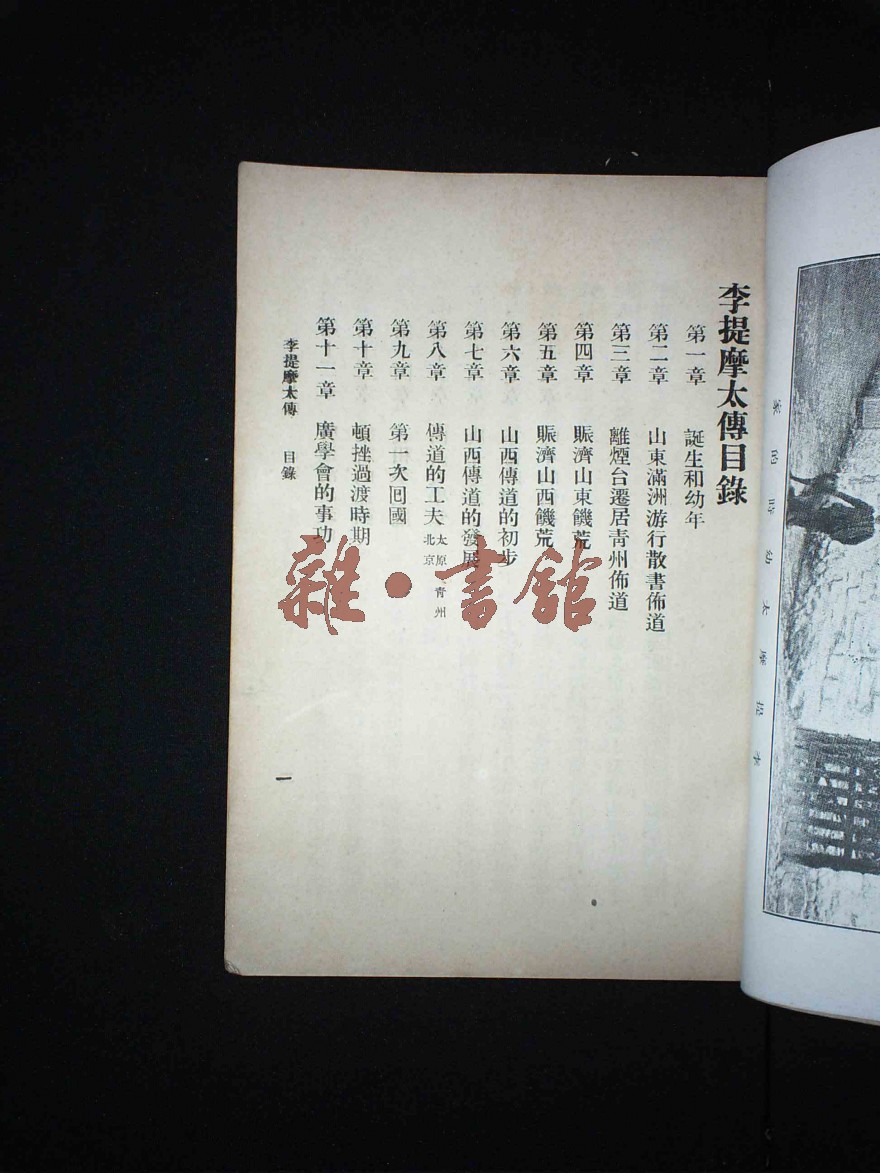 李提摩太傳目錄
第一章 誕生和幼年
第二章 山東滿洲游行散書佈道
第三章 離煙台遷居青州佈道
第四章 賑濟山東饑荒
第五章 賑濟山西饑荒
第六章 山西傳道的初步
第七章 山西傳道的發展
第八章 傳道的工夫 太原、青州 北京
第九章 第一次回國
第十章 頓挫過渡時期
第十一章 廣學會的事功
李提摩太傳 目錄
一
雜·書館
李提摩太幼時的家